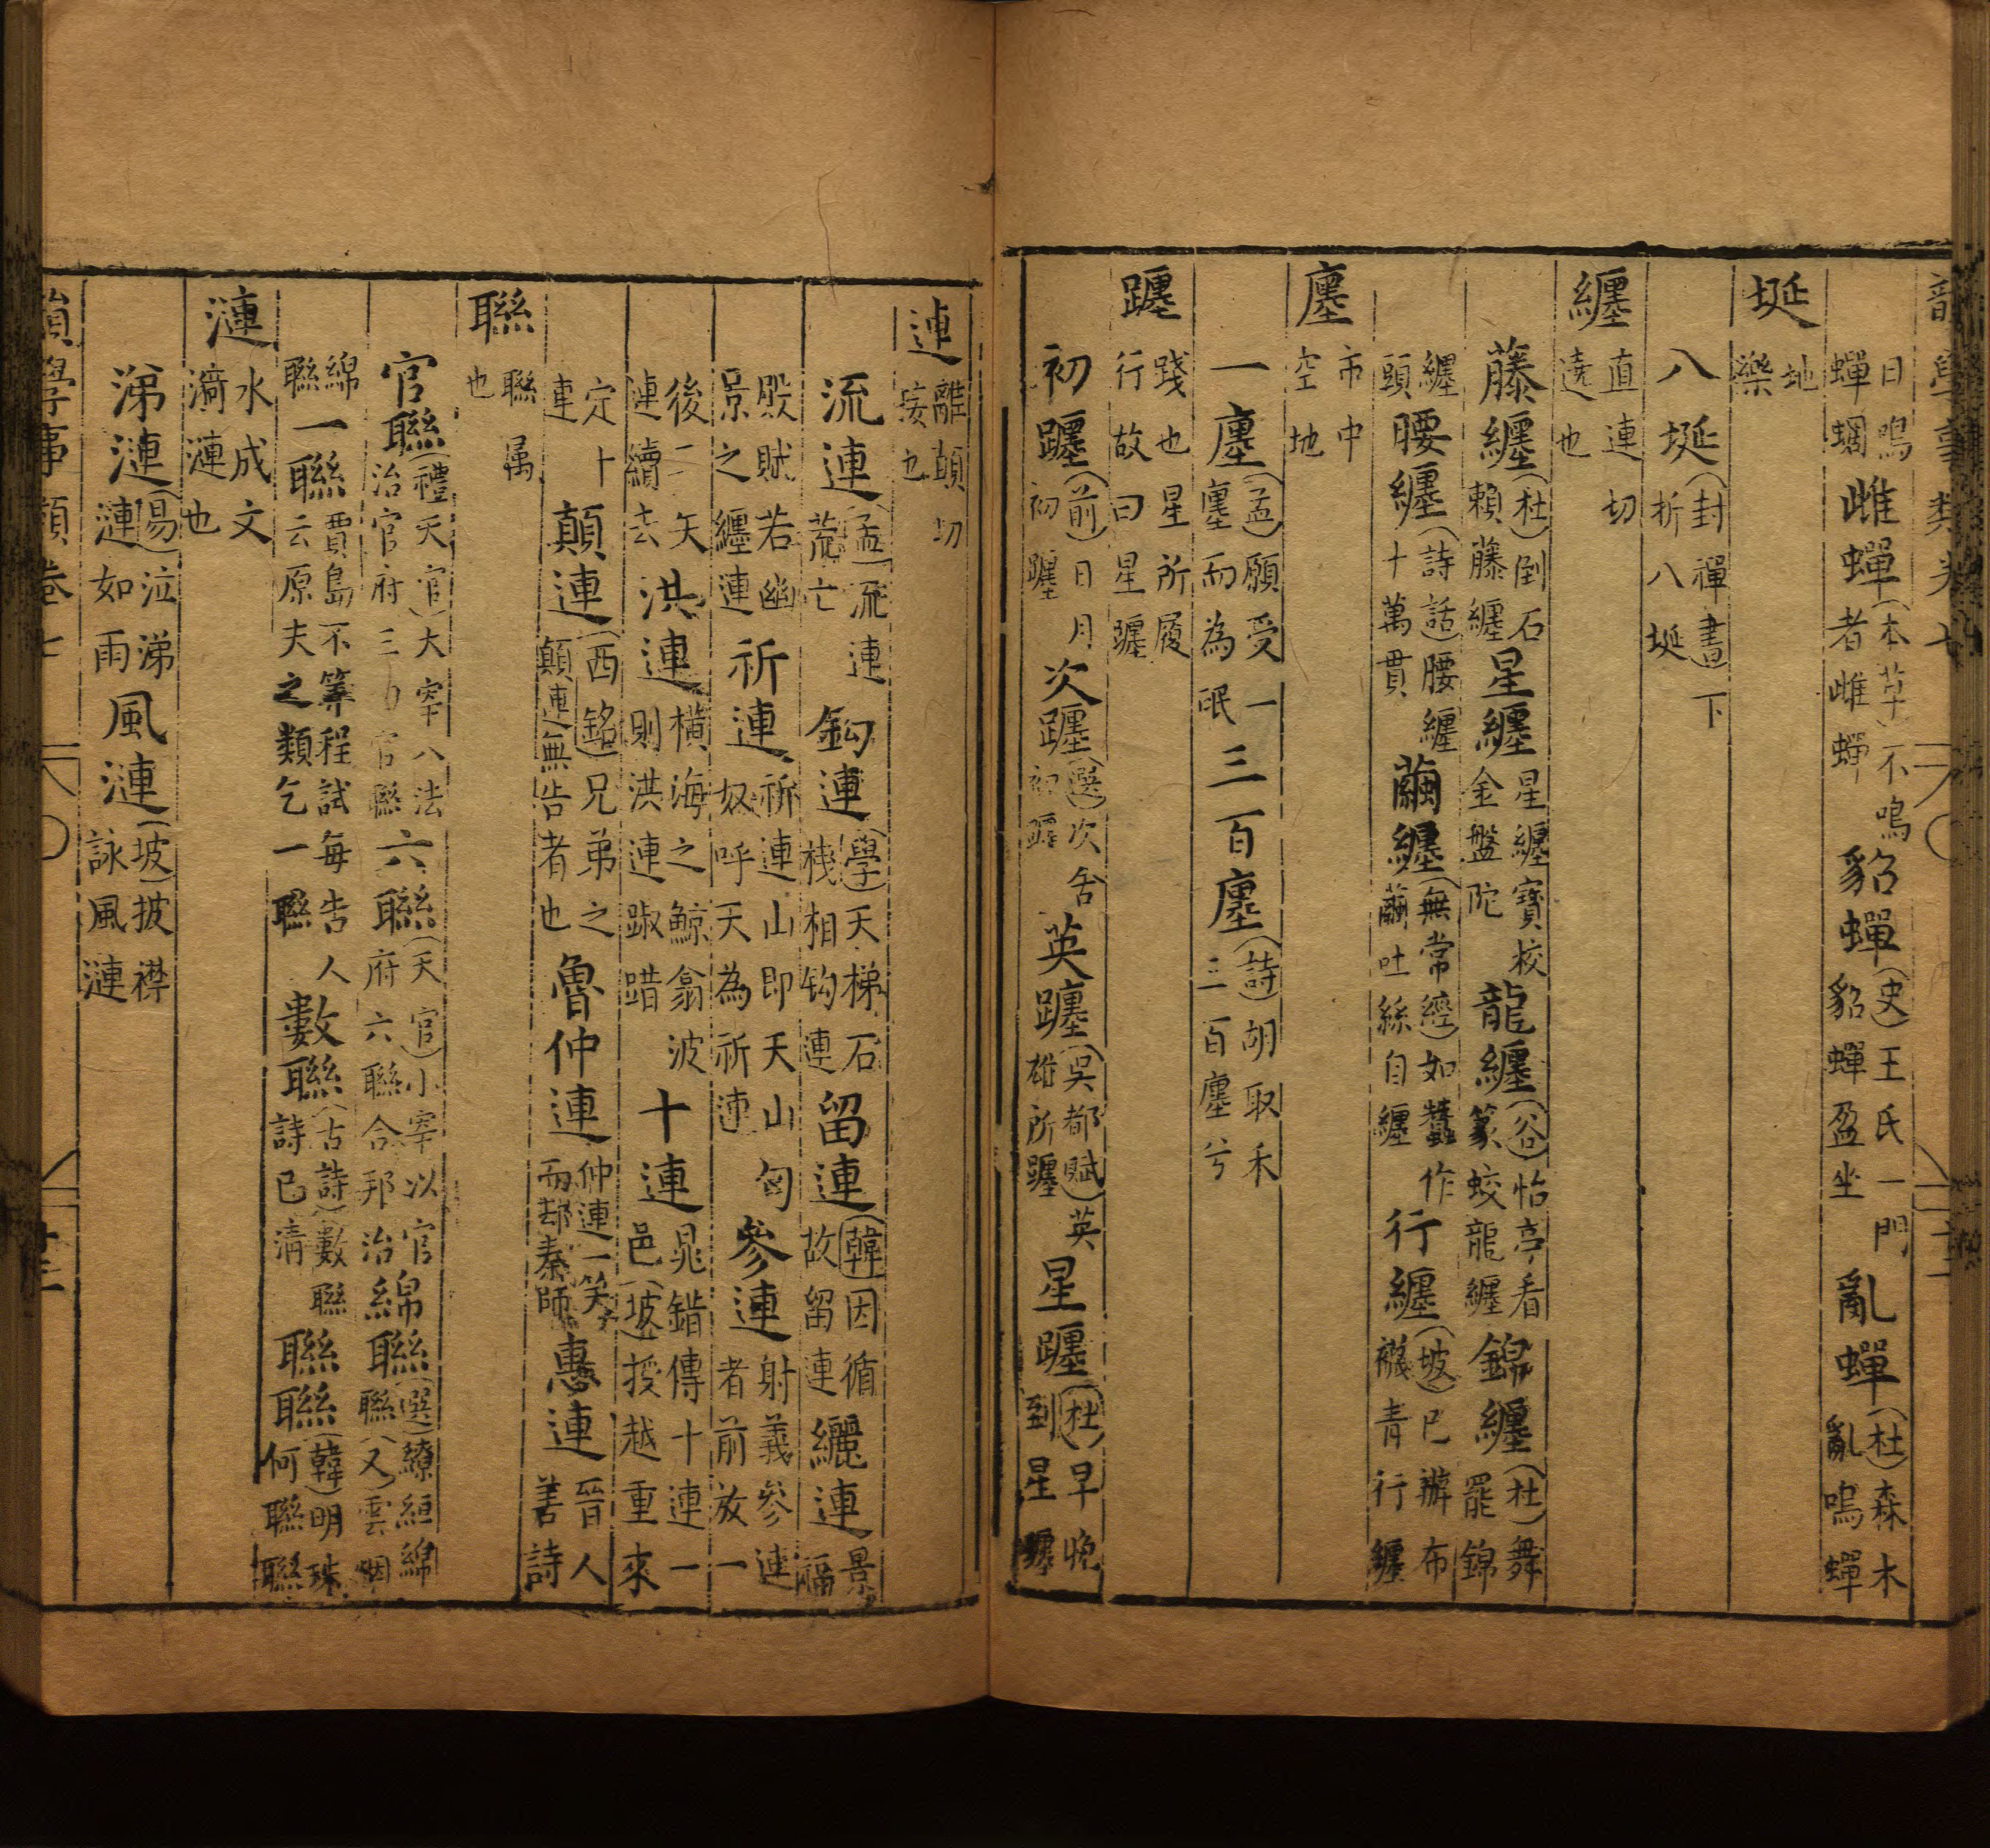 日鳴蟬蜩雌蟬(本草)不鳴者雌蟬貂蟬(史)王氏一門貂蟬盈坐亂蟬(杜)森木亂鳴蟬
埏地
八埏(封禪書)下折八埏
纏直連切遶也
藤纏(杜)倒石賴藤纏星纏星纏寶校金盤陀龍纏(谷)怡亭看篆蛟龍纏錦纏(杜)舞罷錦
纏頭腰纏(詩話)腰纏十萬貫繭纏(無常經)如蠶作繭吐絲自纏行纏(坡)已辦布襪青行纏
廛市中空地
一廛(孟)願受一廛而為氓三百廛(詩)胡取禾三百廛兮
躔踐也星所履行故曰星躔
初躔(前)日月初躔次躔(選)次舍初躔英躔(吳都賦)英雄所躔星躔(杜)早晚到星躔
連
流連(孟)流連荒亡鈎連(學)天梯石棧相鈎連留連(韓)因循故留連纚連景福
殿賦若幽景之纚連祈連祈連山即天山匈奴呼天為祈連參連射義參連者前放一
後二矢連續去洪連橫海之鯨翕波則洪連踧踖十連晁錯傳十連一邑(坡)授越重來
定十連顛連(西銘)兄弟之顛連無告者也魯仲連仲連一笑而却秦師惠連晉人善詩
聯聯属也
官聯(禮天官)大宰八法治官府三曰官聯六聯(天官)小宰以官府六聯合邦治綿聯(選)繚絙綿聯(又)雲烟
綿聯一聯賈島不筭程試每告人云原夫之類乞一聯數聯(古詩)數聯詩已清聯聯(韓)明珠何聯聯
漣水成文漪漣也
涕漣(易)泣涕漣如雨風漣(坡)披襟詠風漣